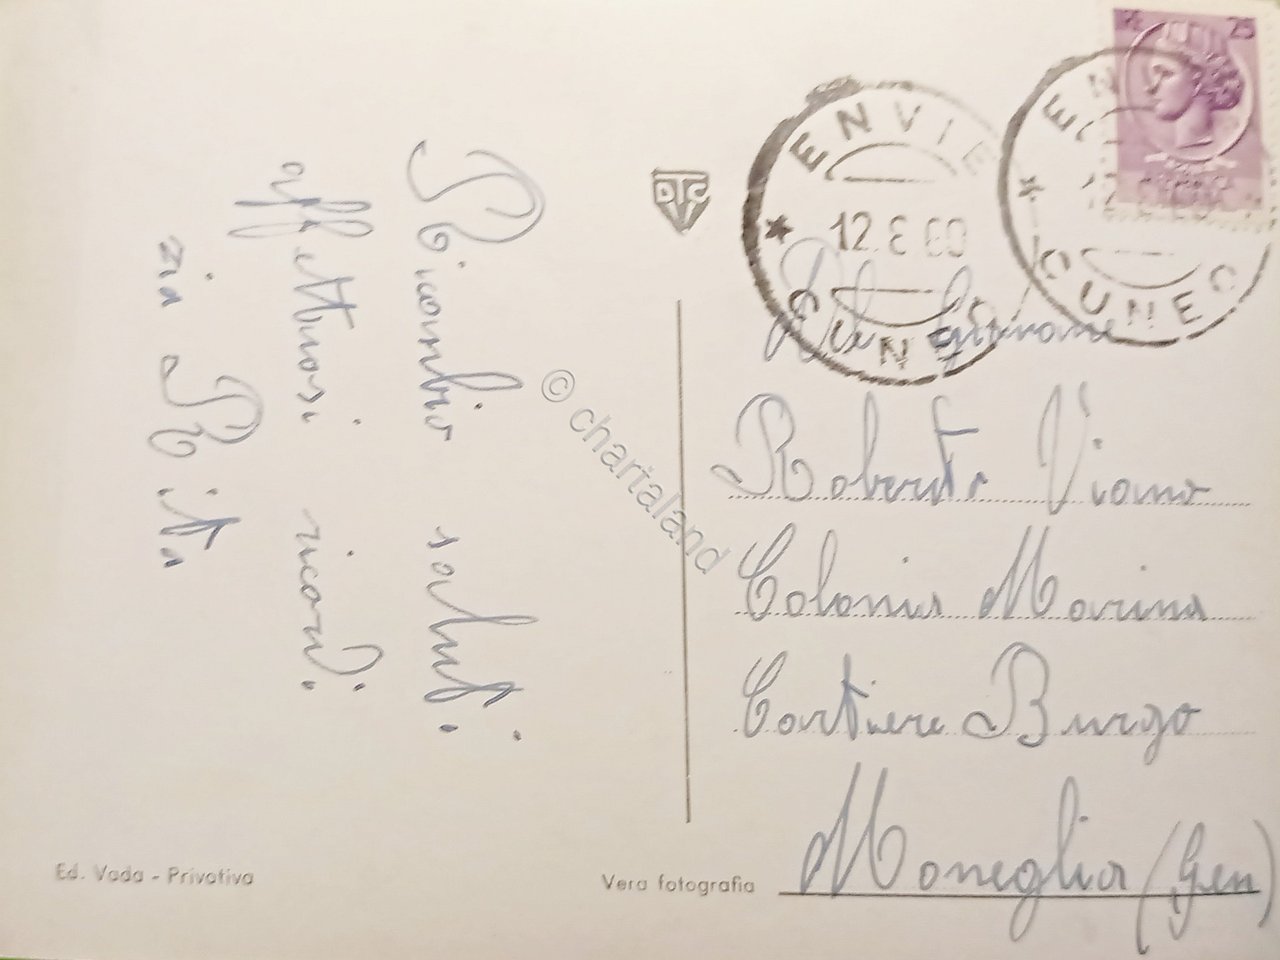 Ricambio saluti.
affettuosi ricordi.
zia Rita
Ed. Vada - Privativa
Vera fotografia
© chartaland
DTC
25
ENVIE
* 12.8 60
CUNEO
EN
* CUNEO
Giovane
Roberto Viano
Colonia Marina
Cartiere Burgo
Moneglia (Gen)